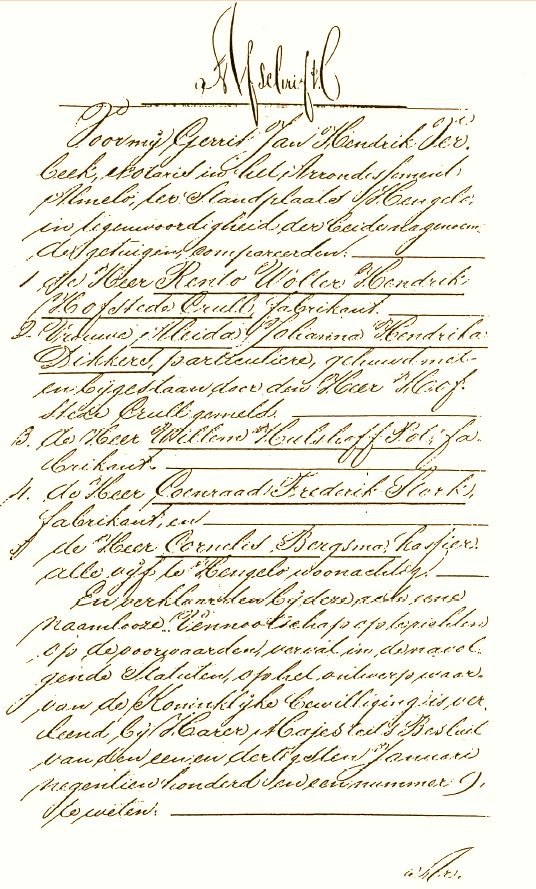 Afschrift
Voor mij Gerrit Jan Hendrik Ver-
beek, notaris in het Arrondissement
Almelo, ter Standplaats Hengelo,
in tegenwoordigheid der beide nagenoem-
de getuigen, compareerden:
1. de Heer Rento Wolter Hendrik
Hofstede Crull, fabrikant.
2. Vrouwe Aleida Johanna Hendrika
Dikkers, particuliere, gehuwd met
en bijgestaan door den Heer Hof-
stede Crull gemeld.
3. de Heer Willem Hulshoff Pol, fa-
brikant.
4. de Heer Coenraad Frederik Stork,
fabrikant, en
5 de Heer Cornelis Bergsma, kassier.
alle vijf te Hengelo woonachtig.
En verklaarden bij deze acte eene
Naamlooze Vennootschap op te richten
op de voorwaarden, vervat in de navol-
gende Statuten, op het ontwerp waar-
van de Koninklijke bewilliging is ver-
leend bij Harer Majesteit's Besluit
van den een en dertigsten Januari
negentien honderd een nummer 9,
te weten: